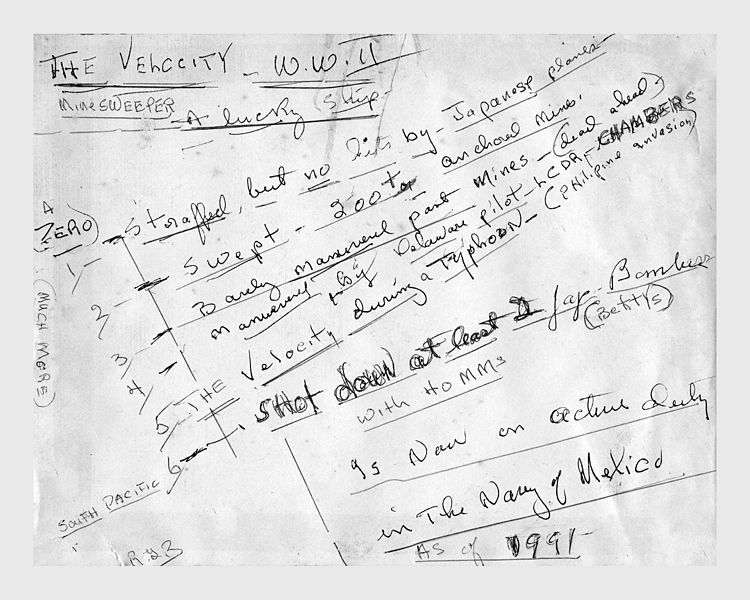 THE VELOCITY - W.W. II
MINESWEEPER - A lucky Ship -
A ZERO)
1/ - Straffed, but no hits by - Japanese planes
2/ - Swept - 200 + anchored mines.
3/ - Barely maneuvered past mines - (dead ahead)
4/ - maneuvered - By Delaware pilot LCDR. CHAMBERS
5/ THE Velocity during a Typhoon - (Philipine invasion)
6/ - SHOT down at least 2 Jap. Bombers
(Bettys)
with 40 MMs
(MUCH MORE)
Is Now on active duty
in The Navy of Mexico
AS of 1991
SOUTH PACIFIC